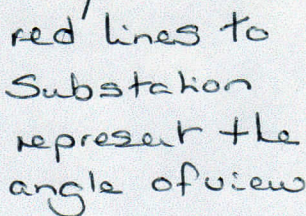 red lines to
Substation
represent the
angle of view